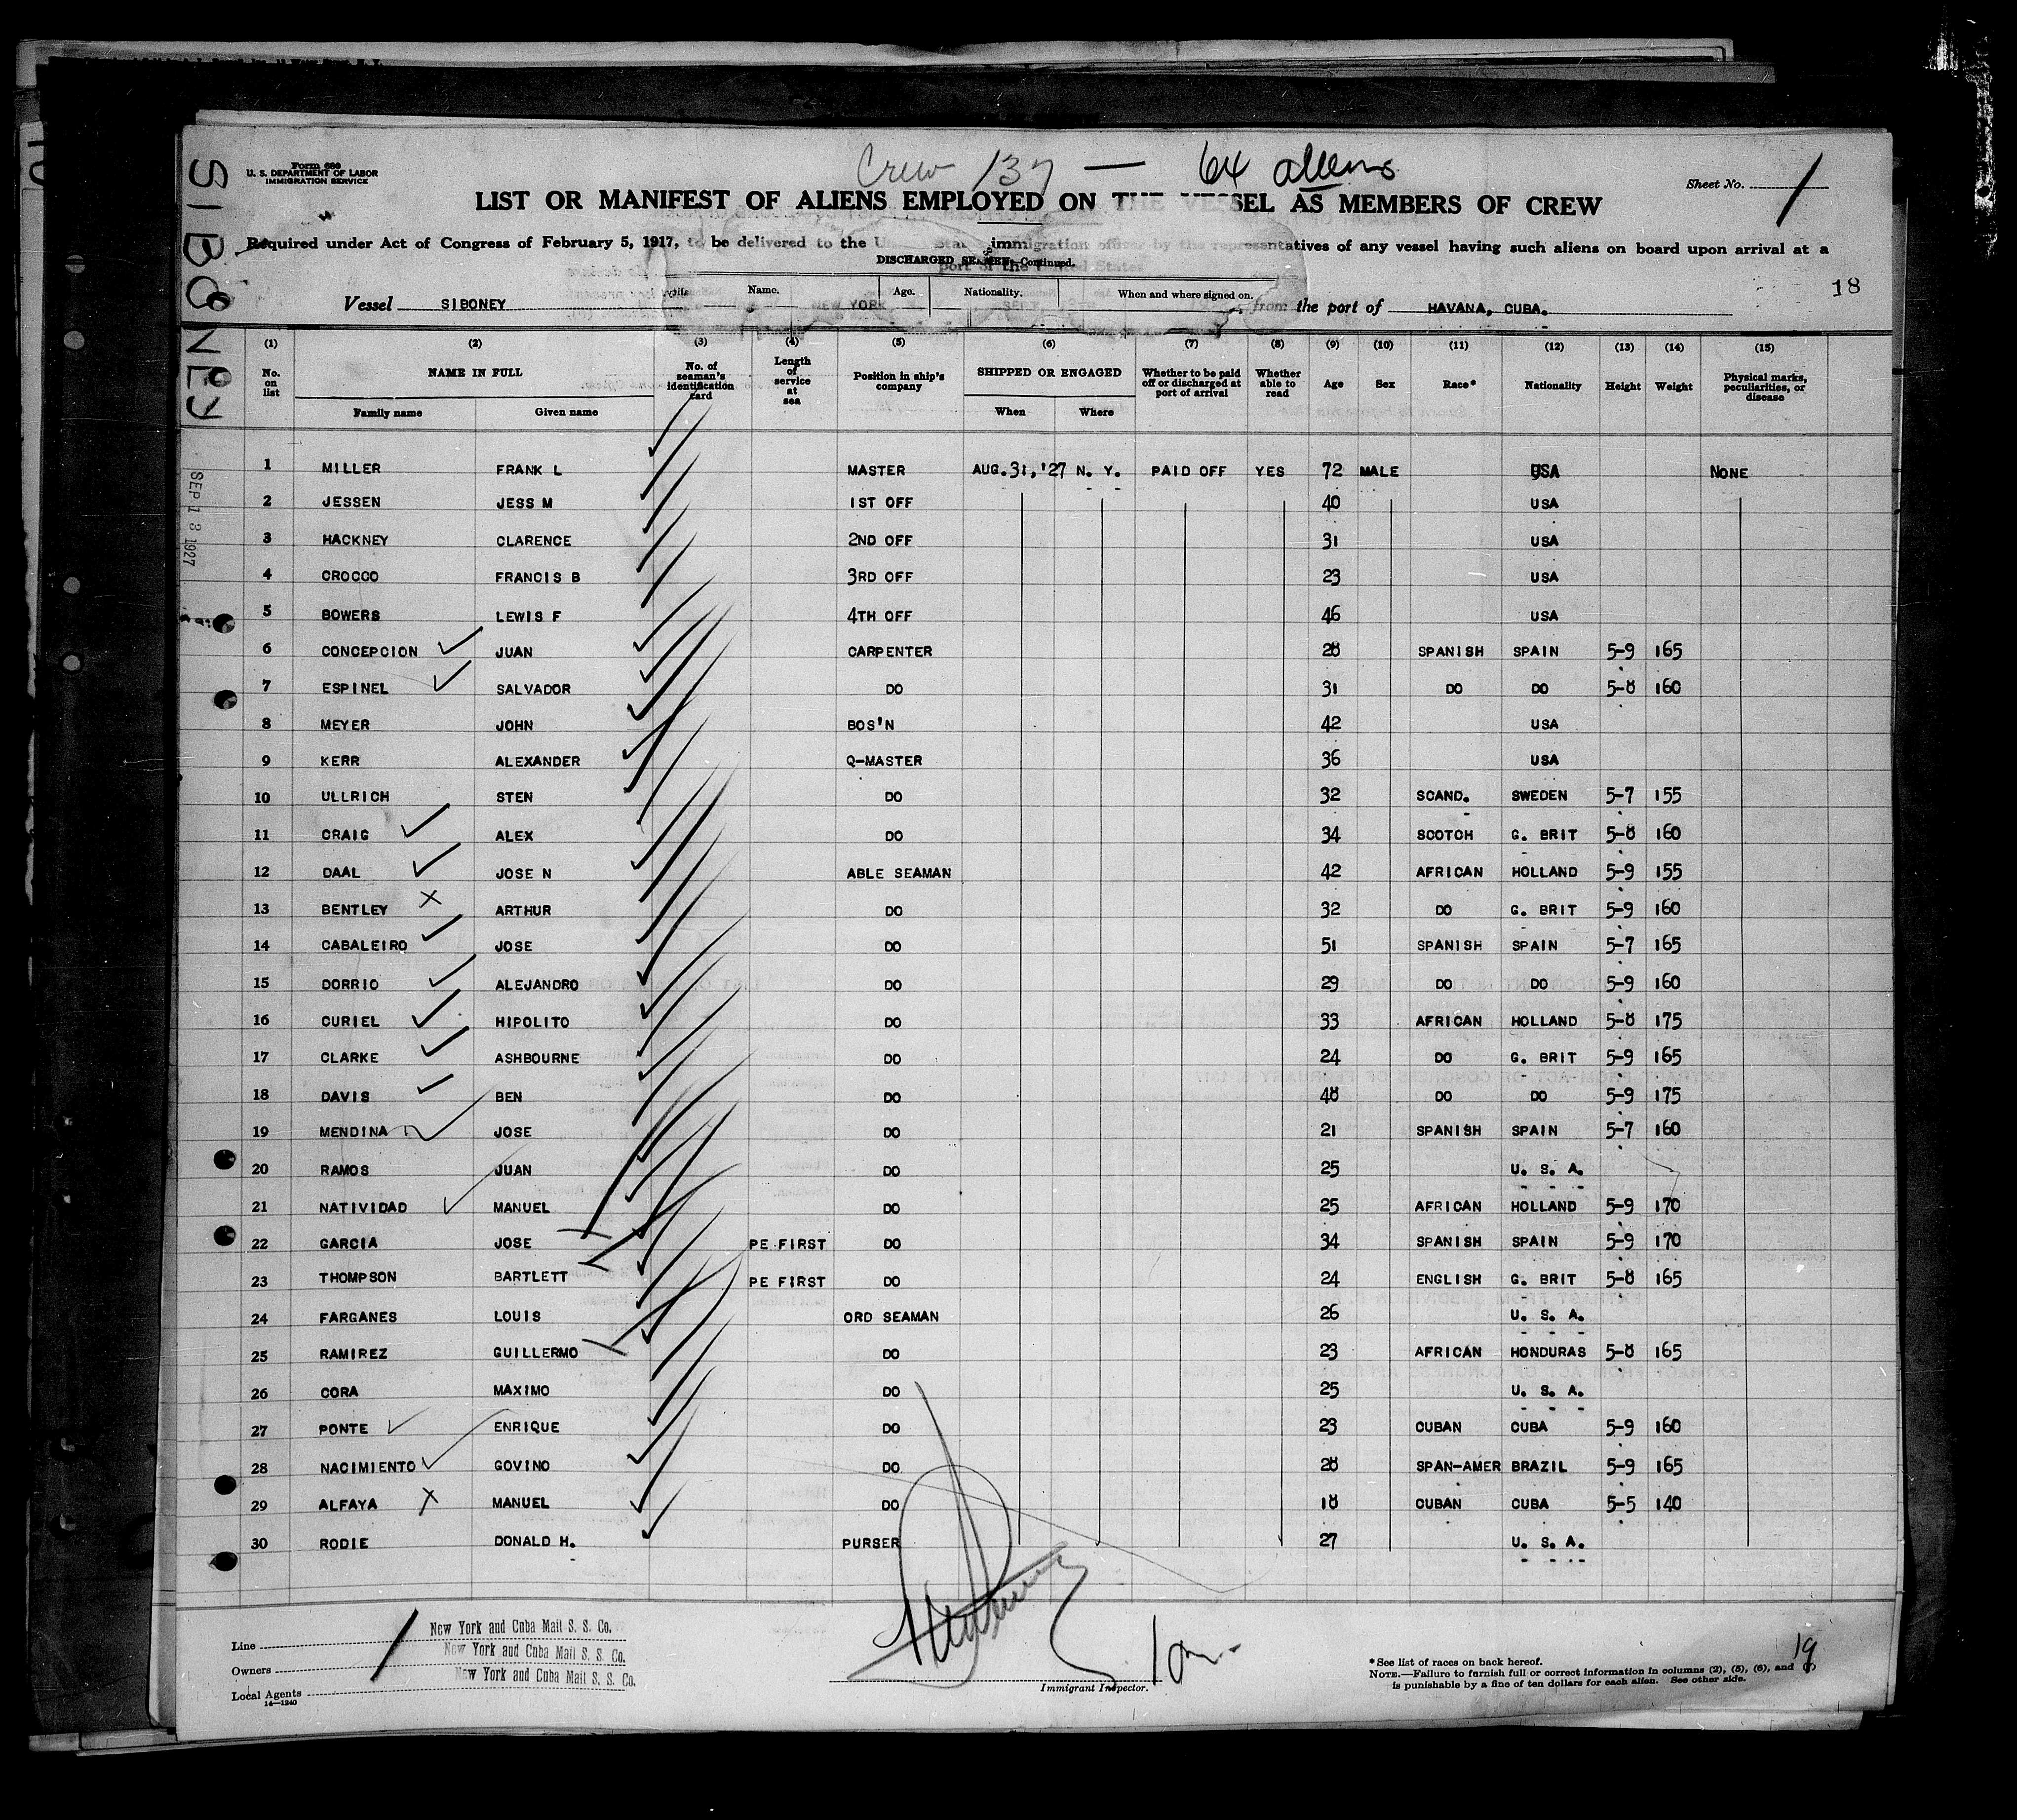 Crew 137 — 64 aliens
Form 680
U. S. DEPARTMENT OF LABOR
IMMIGRATION SERVICE
Sheet No. 1
LIST OR MANIFEST OF ALIENS EMPLOYED ON THE VESSEL AS MEMBERS OF CREW
Required under Act of Congress of February 5, 1917, to be delivered to the immigration officer by the representatives of any vessel having such aliens on board upon arrival at a
DISCHARGED SEAMEN—Continued.
port of the States
Name. Age. Nationality. When and where signed on.
18
Vessel SIBONEY NEW YORK from the port of HAVANA, CUBA.
SIBONEY
SEP 13 1927
(1) (2) (3) (4) (5) (6) (7) (8) (9) (10) (11) (12) (13) (14) (15)
No. on list NAME IN FULL No. of seaman's identification card Length of service at sea Position in ship's company SHIPPED OR ENGAGED Whether to be paid off or discharged at port of arrival Whether able to read Age Sex Race* Nationality Height Weight Physical marks, peculiarities, or disease
Family name Given name When Where
1 MILLER FRANK L MASTER AUG. 31, '27 N. Y. PAID OFF YES 72 MALE USA NONE
2 JESSEN JESS M 1ST OFF 40 USA
3 HACKNEY CLARENCE 2ND OFF 31 USA
4 CROCCO FRANCIS B 3RD OFF 23 USA
5 BOWERS LEWIS F 4TH OFF 46 USA
6 CONCEPCION JUAN CARPENTER 28 SPANISH SPAIN 5-9 165
7 ESPINEL SALVADOR DO 31 DO DO 5-8 160
8 MEYER JOHN BOS'N 42 USA
9 KERR ALEXANDER Q-MASTER 36 USA
10 ULLRICH STEN DO 32 SCAND. SWEDEN 5-7 155
11 CRAIG ALEX DO 34 SCOTCH G. BRIT 5-8 160
12 DAAL JOSE N ABLE SEAMAN 42 AFRICAN HOLLAND 5-9 155
13 BENTLEY ARTHUR DO 32 DO G. BRIT 5-9 160
14 CABALEIRO JOSE DO 51 SPANISH SPAIN 5-7 165
15 DORRIO ALEJANDRO DO 29 DO DO 5-9 160
16 CURIEL HIPOLITO DO 33 AFRICAN HOLLAND 5-8 175
17 CLARKE ASHBOURNE DO 24 DO G. BRIT 5-9 165
18 DAVIS BEN DO 48 DO DO 5-9 175
19 MENDINA JOSE DO 21 SPANISH SPAIN 5-7 160
20 RAMOS JUAN DO 25 U. S. A.
21 NATIVIDAD MANUEL DO 25 AFRICAN HOLLAND 5-9 170
22 GARCIA JOSE PE FIRST DO 34 SPANISH SPAIN 5-9 170
23 THOMPSON BARTLETT PE FIRST DO 24 ENGLISH G. BRIT 5-8 165
24 FARGANES LOUIS ORD SEAMAN 26 U. S. A.
25 RAMIREZ GUILLERMO DO 23 AFRICAN HONDURAS 5-8 165
26 CORA MAXIMO DO 25 U. S. A.
27 PONTE ENRIQUE DO 23 CUBAN CUBA 5-9 160
28 NACIMIENTO GOVINO DO 28 SPAN-AMER BRAZIL 5-9 165
29 ALFAYA MANUEL DO 18 CUBAN CUBA 5-5 140
30 RODIE DONALD H. PURSER 27 U. S. A.
Line New York and Cuba Mail S. S. Co.
Owners New York and Cuba Mail S. S. Co.
Local Agents New York and Cuba Mail S. S. Co.
14—1240
Immigrant Inspector.
*See list of races on back hereof.
NOTE.—Failure to furnish full or correct information in columns (2), (5), (6), and
is punishable by a fine of ten dollars for each alien. See other side.